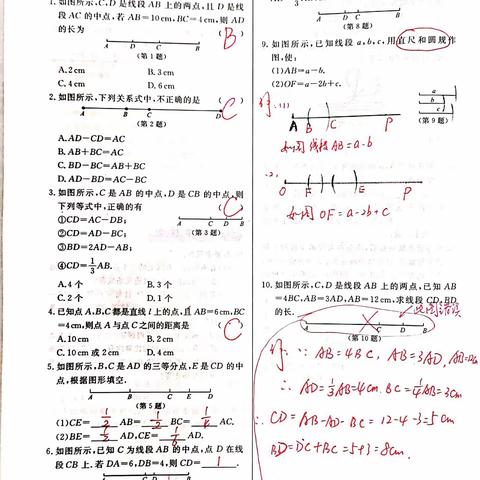 1. 如图所示,C,D是线段AB上的两点,且D是线
段AC的中点,若AB=10cm,BC=4cm,则AD
的长为 ( B )
A D C B
(第1题)
A.2 cm B.3 cm
C.4 cm D.6 cm
2. 如图所示,下列关系式中,不正确的是 ( C )
A B C D
(第2题)
A.AD-CD=AC
B.AB+BC=AC
C.BD-BC=AB+BC
D.AD-BD=AC-BC
3. 如图所示,C是AB的中点,D是CB的中点,则
下列等式中,正确的有 ( C )
①CD=AC-DB;
A C D B
②CD=AD-BC;
(第3题)
③BD=2AD-AB;
④CD=1/3AB.
A.4个 B.3个
C.2个 D.1个
4. 已知点A,B,C都是直线l上的点,且AB=6cm,BC
=4cm,则点A与点C之间的距离是 ( C )
A.10 cm B.2 cm
C.10 cm或2 cm D.4 cm
5. 如图所示,B,C是AD的三等分点,E是CD的中
点,根据图形填空.
A B C E D
(第5题)
(1)CE= 1/2 AB= 1/2 BC= 1/4 AC.
(2)BE= 1/2 AD,CE= 1/6 AD.
6. 如图所示,已知C为线段AB的中点,点D在线
段CB上.若DA=6,DB=4,则CD= 1 .
A D C B
(第8题)
9. 如图所示,已知线段a,b,c,用直尺和圆规作
图,使:
(1)AB=a-b.
(2)OF=a-2b+c.
a
b
c
(第9题)
解:(1)
A B C P
如图线段AB=a-b
(2)
O F E P
如图 OF=a-2b+c
10. 如图所示,C,D是线段AB上的两点,已知AB
=4BC,AB=3AD,AB=12cm,求线段CD,BD
的长.
此图错误
A C D B
(第10题)
解:∵ AB=4BC, AB=3AD, AB=12cm
∴ AD=1/3AB=4cm. BC=1/4AB=3cm
∴ CD=AB-AD-BC=12-4-3=5cm
BD=DC+BC=5+3=8cm.